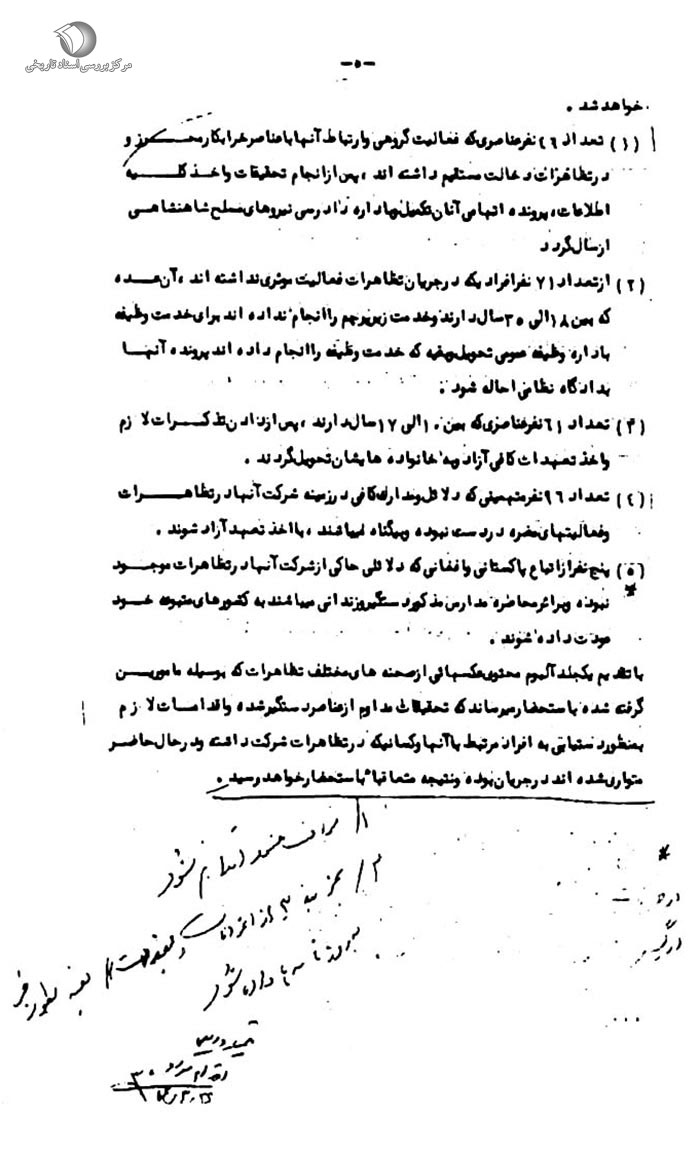 مرکز بررسی اسناد تاریخی
-۵-
خواهد شد .
(۱) تعداد ۲۶ نفر عناصری که فعالیت گروهی و ارتباط آنها با عناصر خرابکار محــرز و
در تظاهرات دخالت مستقیم داشته اند ، پس از انجام تحقیقات و اخذ کلــیه
اطلاعات ، پرونده اتهامی آنان تکمیل و به اداره دادرسی نیروهای مسلح شاهنشاهــی
ارسال گردد
(۲) از تعداد ۷۱ نفر افرادیکه در جریان تظاهرات فعالیت موثری نداشته اند ، آن عــده
که بین ۱۸ الی ۳۰ سال دارند و خدمت زیر پرچم را انجام نداده اند برای خدمت وظیفه
باداره وظیفه عمومی تحویل و بقیه که خدمت وظیفه را انجام داده اند پرونده آنهــا
بدادگاه نظامی احاله شود .
(۳) تعداد ۶۱ نفر عناصری که بین ۱۰ الی ۱۷ سال دارند ، پس از دادن تذکــرات لازم
و اخذ تعهدات کافی آزاد و به خانواده هایشان تحویل گردند .
(٤) تعداد ۹۶ نفر متهمینی که دلائل و مدارک کافی در زمینه شرکت آنها در تظاهــرات
و فعالیتهای مضره در دست نبوده و بیگناه میباشند ، با اخذ تعهد آزاد شوند .
(۵) پنج نفر از اتباع پاکستانی و افغانی که دلائلی حاکی از شرکت آنها در تظاهرات موجــود
نبوده و بر اثر محاصره مدارس مذکور دستگیر و زندانی میباشند به کشورهای متبوعه خــود
عودت داده شوند .
با تقدیم یکجلد آلبوم محتوی عکسهائی از صحنه های مختلف تظاهرات که بوسیله مامورین
گرفته شده باستحضار میرساند که تحقیقات مداوم از عناصر دستگیر شده و اقدامــات لازم
بمنظور دستیابی به افراد مرتبط با آنها و کسانیکه در تظاهرات شرکت داشته و در حال حاضر
متواری شده اند در جریان بوده و نتیجه متعاقبا" باستحضار خواهد رسید .
۱/ اقدام شود
۲/
داده شود